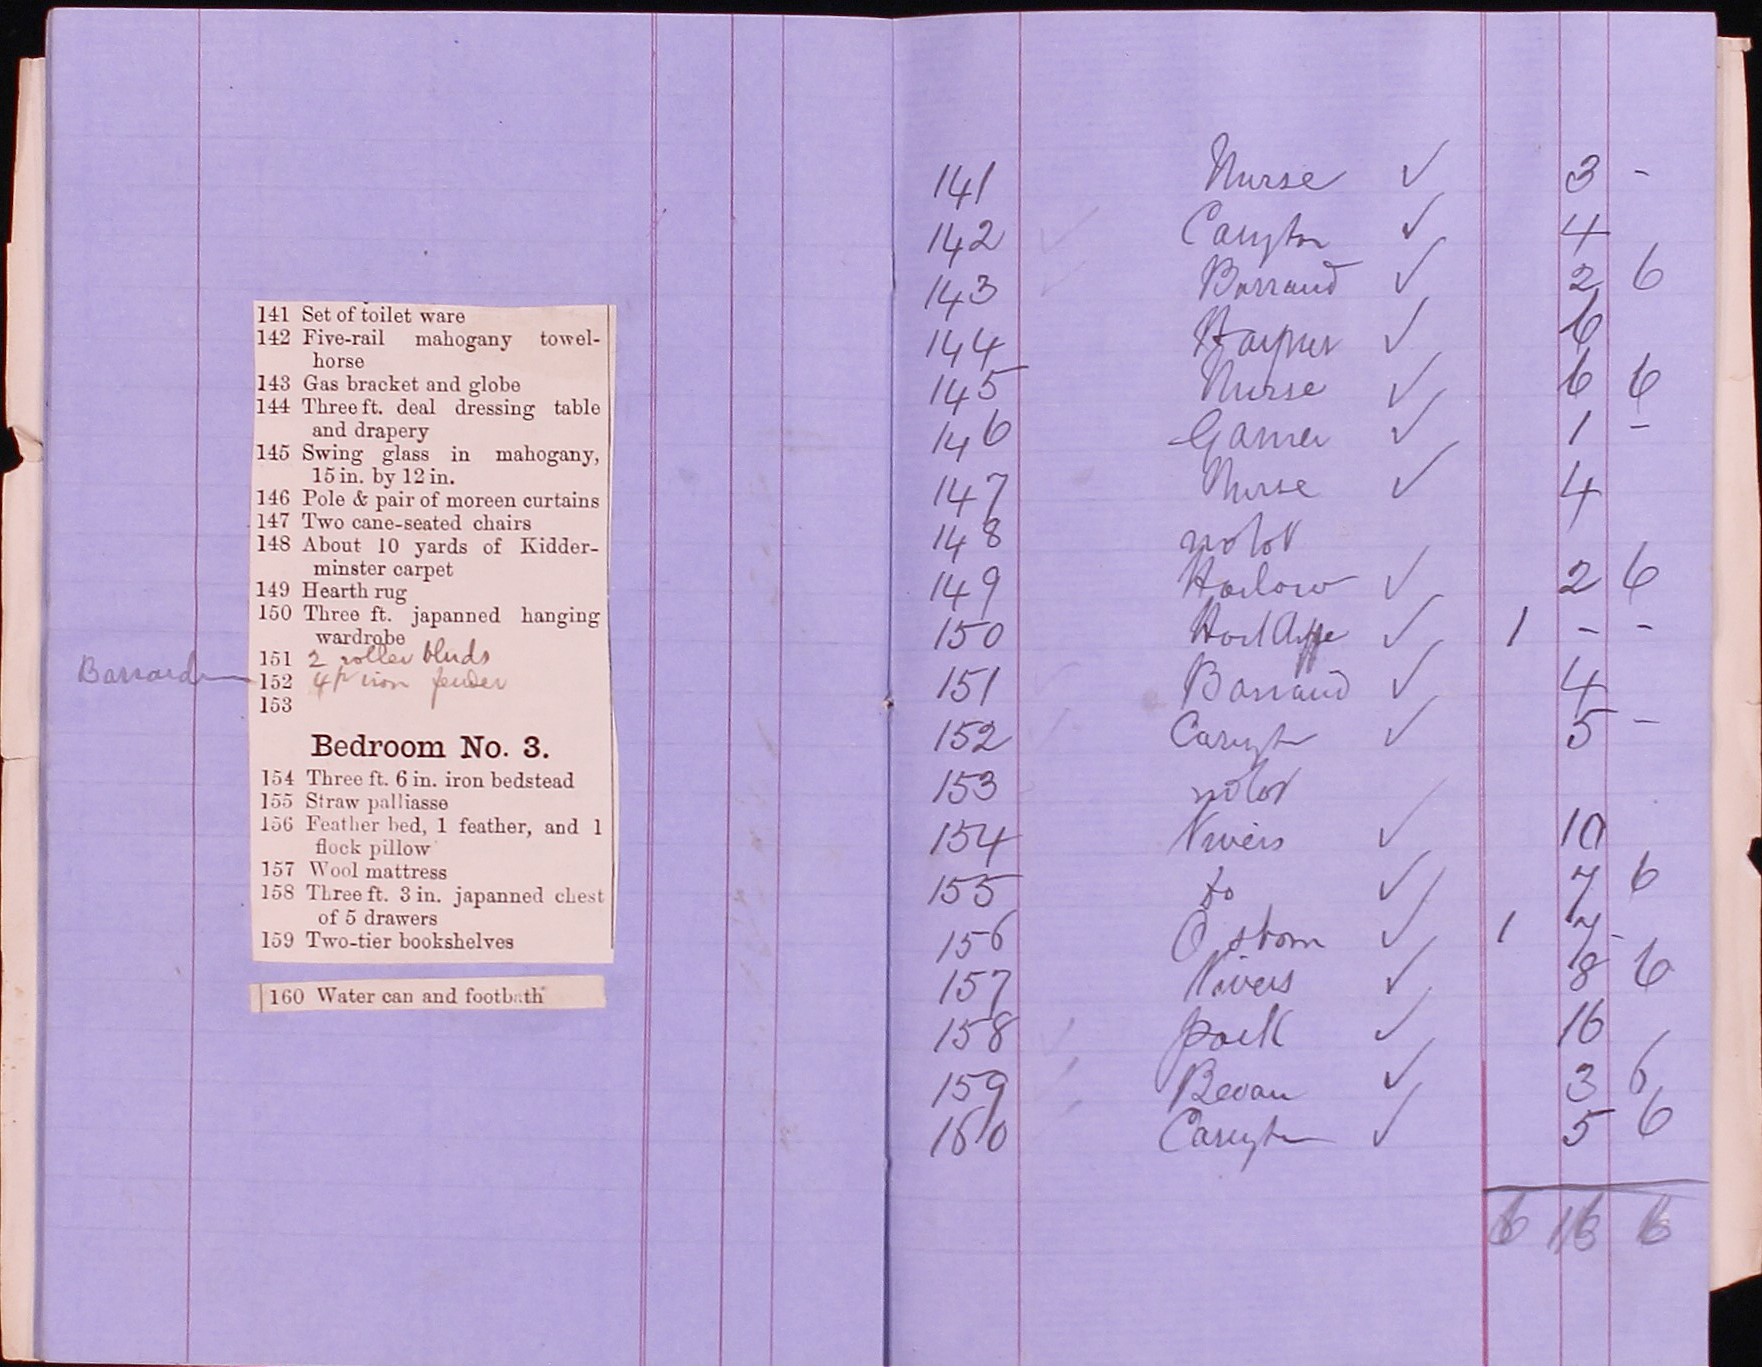 141 Set of toilet ware
142 Five-rail mahogany towel-
horse
143 Gas bracket and globe
144 Three ft. deal dressing table
and drapery
145 Swing glass in mahogany,
15 in. by 12 in.
146 Pole & pair of moreen curtains
147 Two cane-seated chairs
148 About 10 yards of Kidder-
minster carpet
149 Hearth rug
150 Three ft. japanned hanging
wardrobe
151 2 roller blinds
Barraud 152 iron fender
153
Bedroom No. 3.
154 Three ft. 6 in. iron bedstead
155 Straw palliasse
156 Feather bed, 1 feather, and 1
flock pillow
157 Wool mattress
158 Three ft. 3 in. japanned chest
of 5 drawers
159 Two-tier bookshelves
160 Water can and footbath
141 Nurse ✓ 3 -
142 ✓ ✓ 4
143 ✓ Barraud ✓ 2 6
144 ✓ 6
145 Nurse ✓ 6 6
146 ✓ 1 -
147 Nurse ✓ 4
148 no lot
149 Harlow ✓ 2 6
150 ✓ 1 - -
151 Barraud ✓ 4
152 ✓ 5 -
153 no lot
154 ✓ 10
155 Do ✓ 7 6
156 Osborn ✓ 1 7 -
157 ✓ 8 6
158 ✓ 16
159 Bevan ✓ 3 6
160 ✓ 5 6
6 16 6